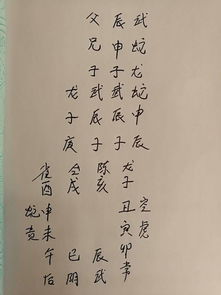 父 辰 武
兄 申 蛇
子 子 龙
龙 武 武 蛇
子 辰 辰 申
庚 子 子 辰
雀 合 陈 龙
酉 戌 亥 子
蛇 申 丑 空
贵 未 寅 虎
午 巳 辰 卯 常
后 阴 武